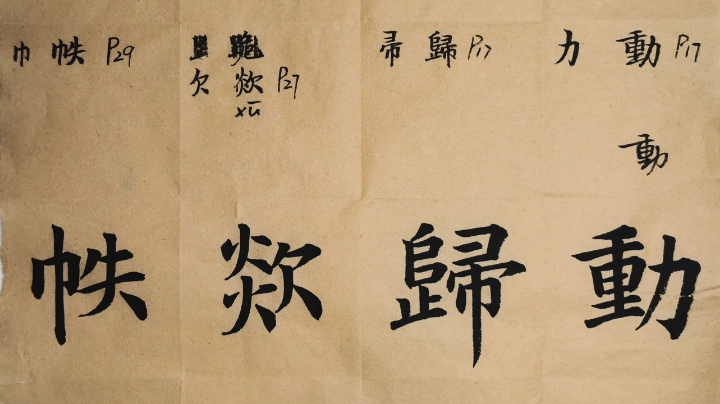 巾 帙 P29
欠 欻 P27
xū
帚 歸 P17
力 動 P17
動
帙 欻 歸 動